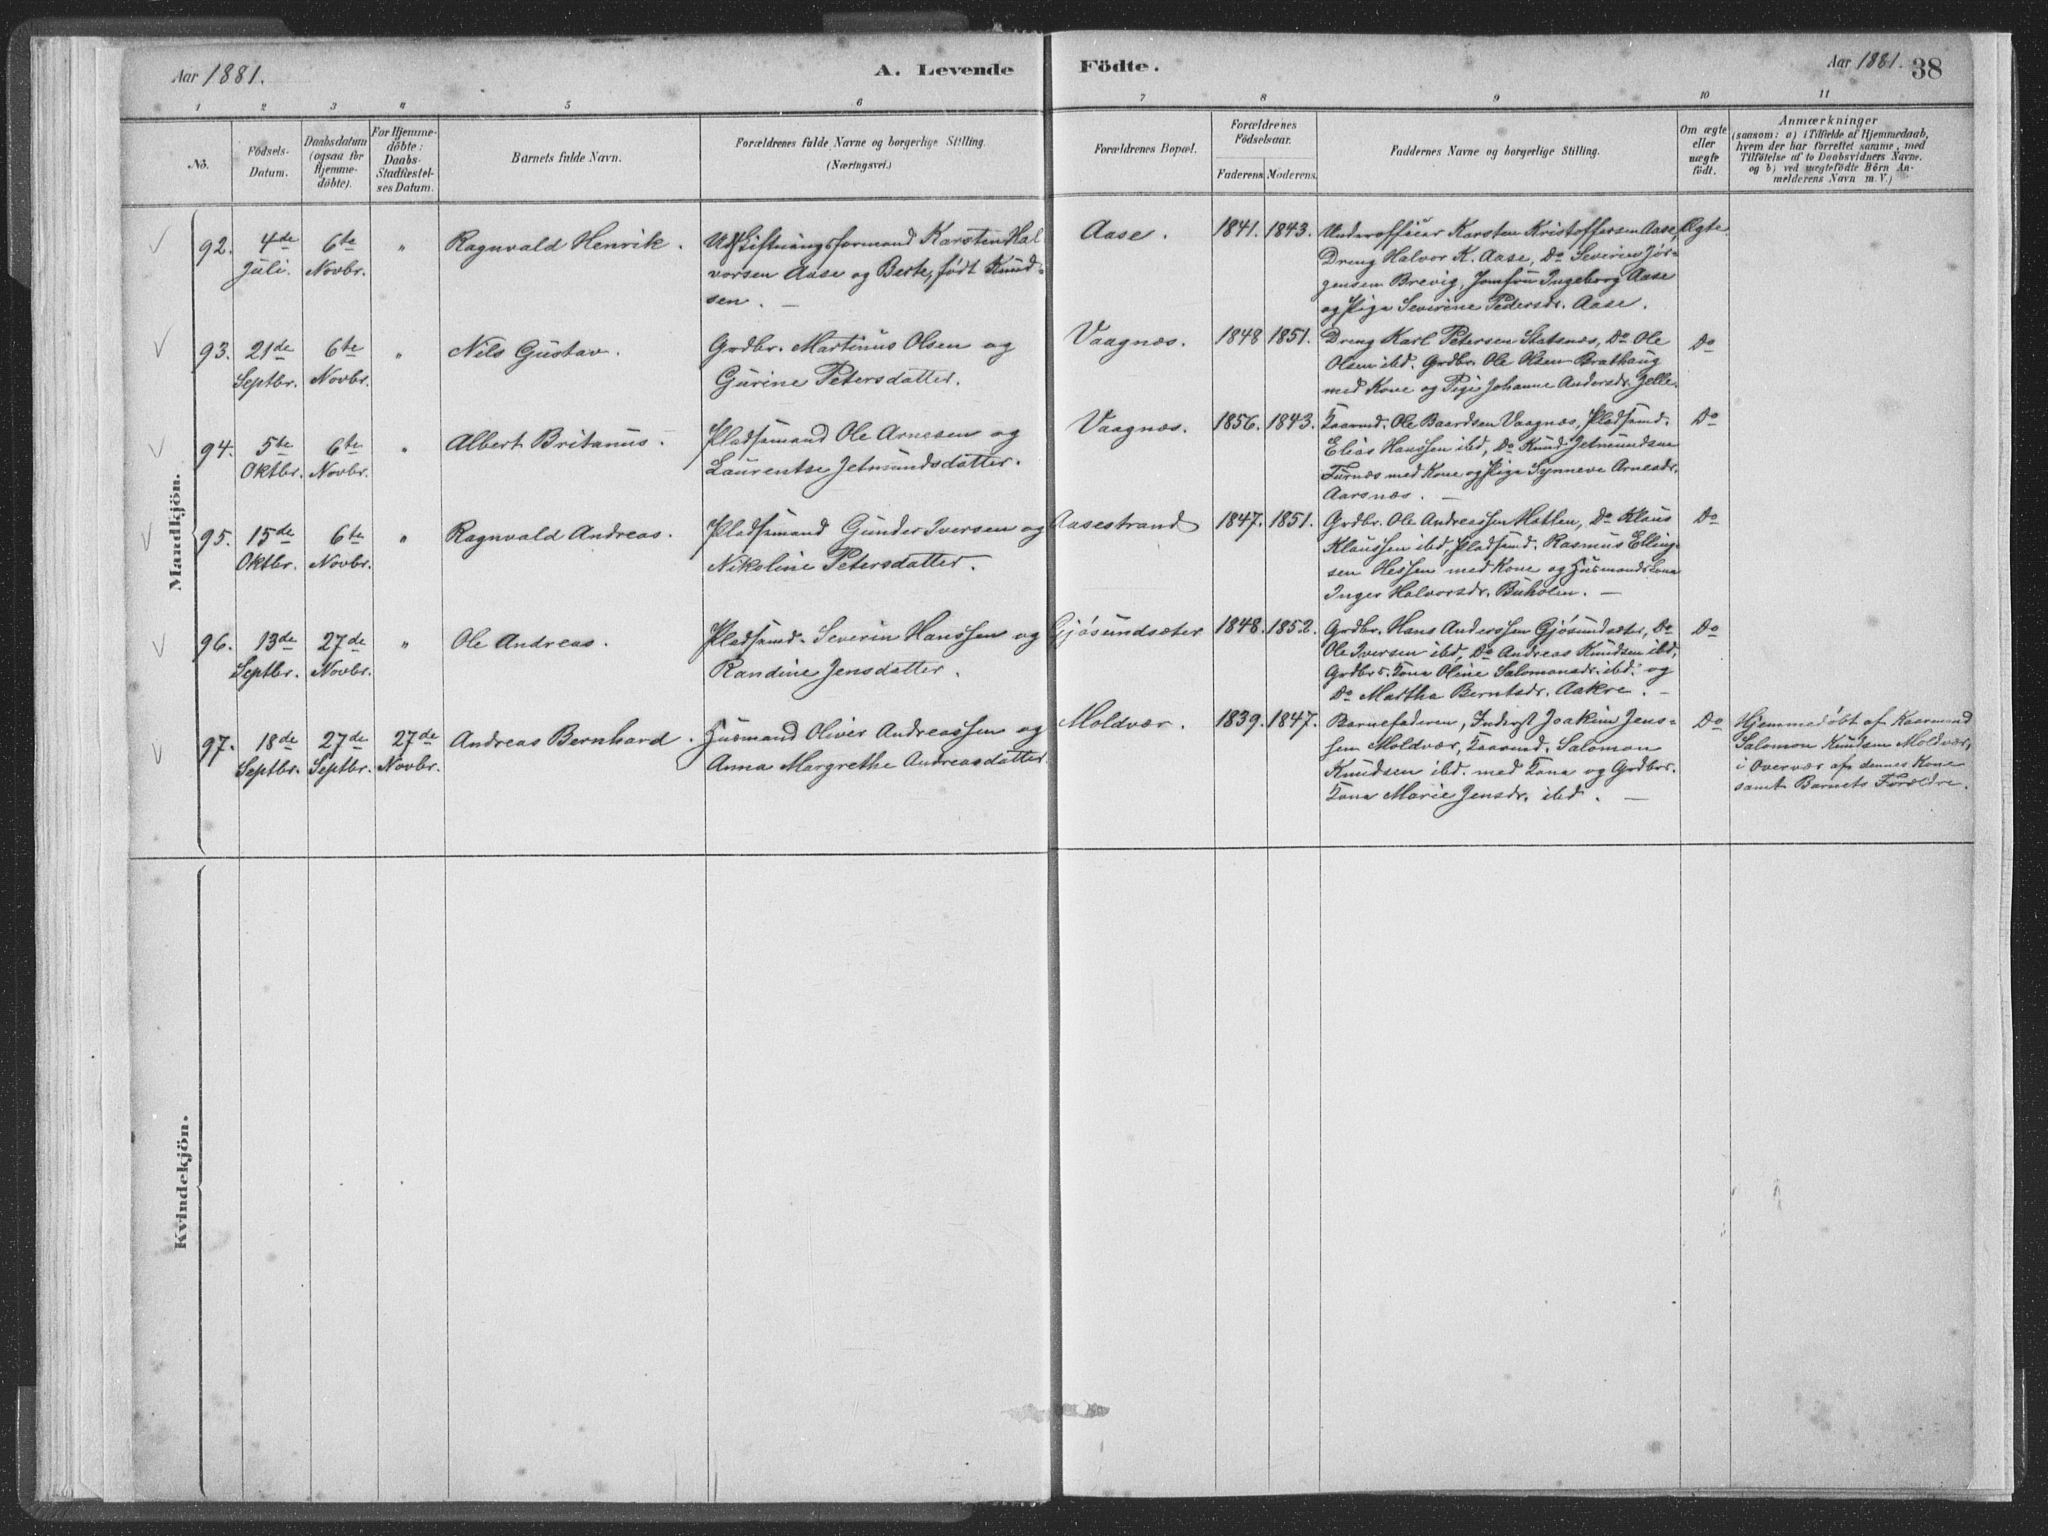 Aar 1881.
A. Levende Födte.
Aar 1881. 38
1 2 3 4 5 6 7 8 9 10 11
No.
Födsels-
Datum.
Daabsdatum
(ogsaa for
Hjemme-
döbte).
For Hjemme-
döbte:
Daabs-
Stadfæstel-
ses Datum.
Barnets fulde Navn.
Forældrenes fulde Navne og borgerlige Stilling.
(Næringsvei.)
Forældrenes Bopæl.
Forældrenes
Födselsaar.
Faderens. Moderens.
Faddernes Navne og borgerlige Stilling.
Om ægte
eller
uægte
födt.
Anmærkninger
(saasom: a) i Tilfælde af Hjemmedaab,
hvem der har forrettet samme, med
Tilföielse af to Daabsvidners Navne.
og b) ved uægtefödte Börn An-
melderens Navn m. V.)
Mandkjön.
92. 4de
Juli.
6te
Novbr.
"
Ragnvald Henrik.
Udskiftningsformand Karsten Hal
vorsen Aase og Berte, født Knud-
sen. —
Aase.
1841. 1843.
Underofficier Karsten Kristoffersen Aase,
Dreng Halvor K. Aase, Do Severin Jør-
gensen Brevig, Jomfru Ingeborg Aase
og Pige Severine Pedersdr. Aase.
Ægte.
93. 21de
Septbr.
6te
Novbr.
"
Nils Gustav.
Grdbr. Martinus Olsen og
Gurine Petersdatter.
Vaagnæs.
1848 1851.
Dreng Karl Petersen Statsnæs, Do Ole
Olsen ibd. Grdbr. Ole Olsen Brathaug
med Kone og Pige Johanne Andersdr.
Do
94. 5te
Oktbr.
6te
Novbr.
"
Albert Britanus.
Pladsmand Ole Arnesen og
Laurentse Jetmundsdatter.
Vaagnæs.
1856. 1843.
Kaarmd. Ole Baardsen Vaagnæs, Pladsmd.
Elias Hanssen ibd, Do Knud Jetmundsen
Furnæs med Kone og Pige Synneve Arnesdr.
Aarsnæs. —
Do
95. 15de
Oktbr.
6te
Novbr.
"
Ragnvald Andreas.
Pladsmand Gunder Iversen og
Nikoline Petersdatter.
Aasestrand
1847. 1851.
Grdbr. Ole Andreassen Hatlen, Do Klaus
Klaussen ibd, Pladsmd. Rasmus Elling-
sen Hessen med Kone og Husmandskona
Inger Halvorsdr. Buholen. —
Do
96. 13de
Septbr.
27de
Novbr.
"
Ole Andreas.
Pladsmd. Severin Hanssen og
Randine Jensdatter.
Gjøsundsæter
1848. 1852.
Grdbr. Hans Anderssen Gjøsundsæter, Do
Ole Iversen ibd, Do Andreas Knudsen ibd,
Grdbrs. Kona Oline Salomonsdr. ibd. og
Do Martha Berntsdr. Aakre. —
Do
97. 18de
Septbr.
27de
Septbr.
27de
Novbr.
Andreas Bernhard.
Husmand Oliver Andreassen og
Anna Margrethe Andreasdatter.
Moldvær.
1839. 1847.
Barnefaderen, Inderst Joakim Jens-
sen Moldvær, Kaarmd. Salomon
Knudsen ibd. med Kona og Grdbrs.
Kona Marie Jensdr. ibd. —
Do
Hjemmedøbt af Kaarmand
Salomon Knudsen Moldvær,
i Overvær af dennes Kone
samt Barnets Forældre.
Kvindekjön.